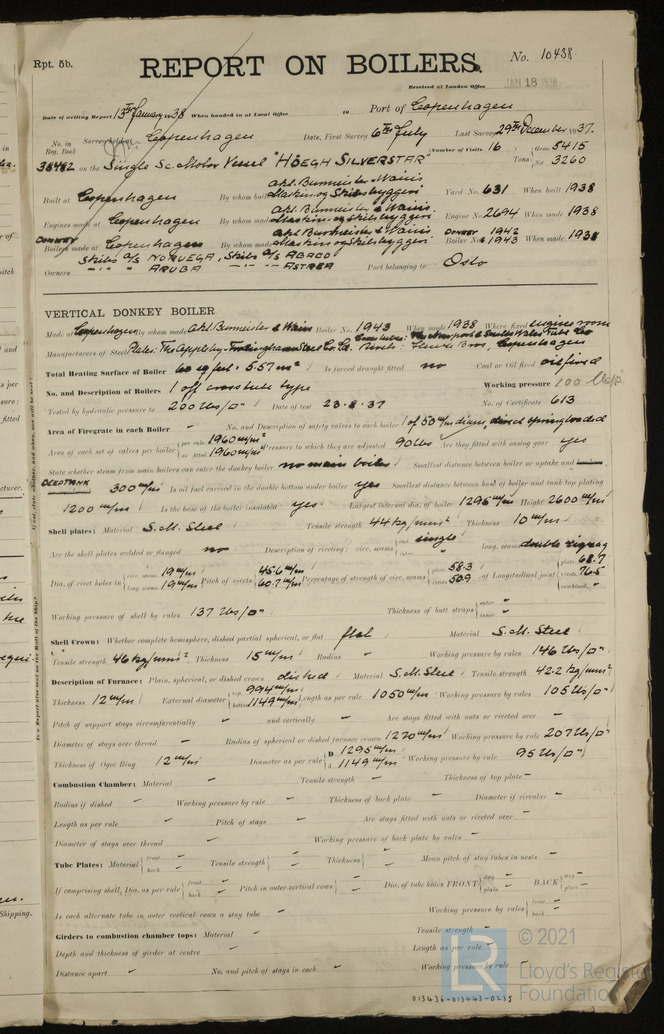 Rpt. 5b.
REPORT ON BOILERS.
No. 10438
Received at London Office JAN 18 1938
Date of writing Report 13th January 1938 When handed in at Local Office 10 Port of Copenhagen
No. in Reg. Book Survey held at Copenhagen Date, First Survey 6th July Last Survey 29th December 1937.
38482 on the Single Sc. Motor Vessel "HÖEGH SILVERSTAR" (Number of Visits 16 Gross 5415
Tons Net 3260
Built at Copenhagen By whom built Akt. Burmeister & Wain's Maskin-og Skibsbyggeri Yard No. 631 When built 1938
Engines made at Copenhagen By whom made Akt. Burmeister & Wain's Maskin-og Skibsbyggeri Engine No. 2694 When made 1938
DONKEY Boilers made at Copenhagen By whom made Akt. Burmeister & Wain's Maskin-og Skibsbyggeri DONKEY Boiler No. 1942 1943 When made 1938
Owners Skibs A/S NORUEGA, Skibs A/S ABACO
ARUBA ASTREA Port belonging to Oslo
VERTICAL DONKEY BOILER
Made at Copenhagen By whom made Akt. Burmeister & Wain Boiler No. 1943 When made 1938 Where fixed engine room
Manufacturers of Steel Plates: The Appleby-Frodingham Steel Co. Ld. Copenhagen
Total Heating Surface of Boiler 60 sq feet = 5.57 m² Is forced draught fitted no Coal or Oil fired oil fired
No. and Description of Boilers 1 off cross tube type Working pressure 100 lbs/□"
Tested by hydraulic pressure to 200 lbs/□" Date of test 23-8-37 No. of Certificate 613
Area of Firegrate in each Boiler - No. and Description of safety valves to each boiler 1 of 50 m/m diam, direct spring loaded
Area of each set of valves per boiler per rule 1960 m/m² as fitted 1960 m/m² Pressure to which they are adjusted 90 lbs Are they fitted with easing gear yes
State whether steam from main boilers can enter the donkey boiler no main boiler Smallest distance between boiler or uptake and bunkers,
DEEPTANK 300 m/m Is oil fuel carried in the double bottom under boiler yes Smallest distance between base of boiler and tank top plating
1200 m/m Is the base of the boiler insulated yes Largest internal dia. of boiler 1295 m/m Height 2600 m/m
Shell plates: Material S.M. Steel Tensile strength 44 kg/mm² Thickness 10 m/m
Are the shell plates welded or flanged no Description of riveting: circ. seams end single inter. long. seams double zigzag
Dia. of rivet holes in circ. seams 19 m/m long. seams 19 m/m Pitch of rivets 45.6 m/m 60.7 m/m Percentage of strength of circ. seams plate 58.3 rivets 50.9 of Longitudinal joint plate 68.7 rivets 76.5 combined -
Working pressure of shell by rules 137 lbs/□" Thickness of butt straps outer - inner -
Shell Crown: Whether complete hemisphere, dished partial spherical, or flat flat Material S.M. Steel
Tensile strength 46 kg/mm² Thickness 15 m/m Radius - Working pressure by rules 146 lbs/□"
Description of Furnace: Plain, spherical, or dished crown dished Material S.M. Steel Tensile strength 42.2 kg/mm²
Thickness 12 m/m External diameter top 994 m/m bottom 1149 m/m Length as per rule 1050 m/m Working pressure by rules 105 lbs/□"
Pitch of support stays circumferentially - and vertically - Are stays fitted with nuts or riveted over -
Diameter of stays over thread - Radius of spherical or dished furnace crown 1270 m/m Working pressure by rule 207 lbs/□"
Thickness of Ogee Ring 12 m/m Diameter as per rule D 1295 m/m d 1149 m/m Working pressure by rule 95 lbs/□"
Combustion Chamber: Material - Tensile strength - Thickness of top plate -
Radius if dished - Working pressure by rule - Thickness of back plate - Diameter if circular -
Length as per rule - Pitch of stays - Are stays fitted with nuts or riveted over -
Diameter of stays over thread - Working pressure of back plate by rules -
Tube Plates: Material front - back - Tensile strength - Thickness - Mean pitch of stay tubes in nests -
If comprising shell, Dia. as per rule front - back - Pitch in outer vertical rows - Dia. of tube holes FRONT stay - plain - BACK stay - plain -
Is each alternate tube in outer vertical rows a stay tube - Working pressure by rules front - back -
Girders to combustion chamber tops: Material - Tensile strength -
Depth and thickness of girder at centre - Length as per rule -
Distance apart - No. and pitch of stays in each - Working pressure by rule -
013436-013443-0235
LR
© 2021
Lloyd's Register
Foundation
Shipping.